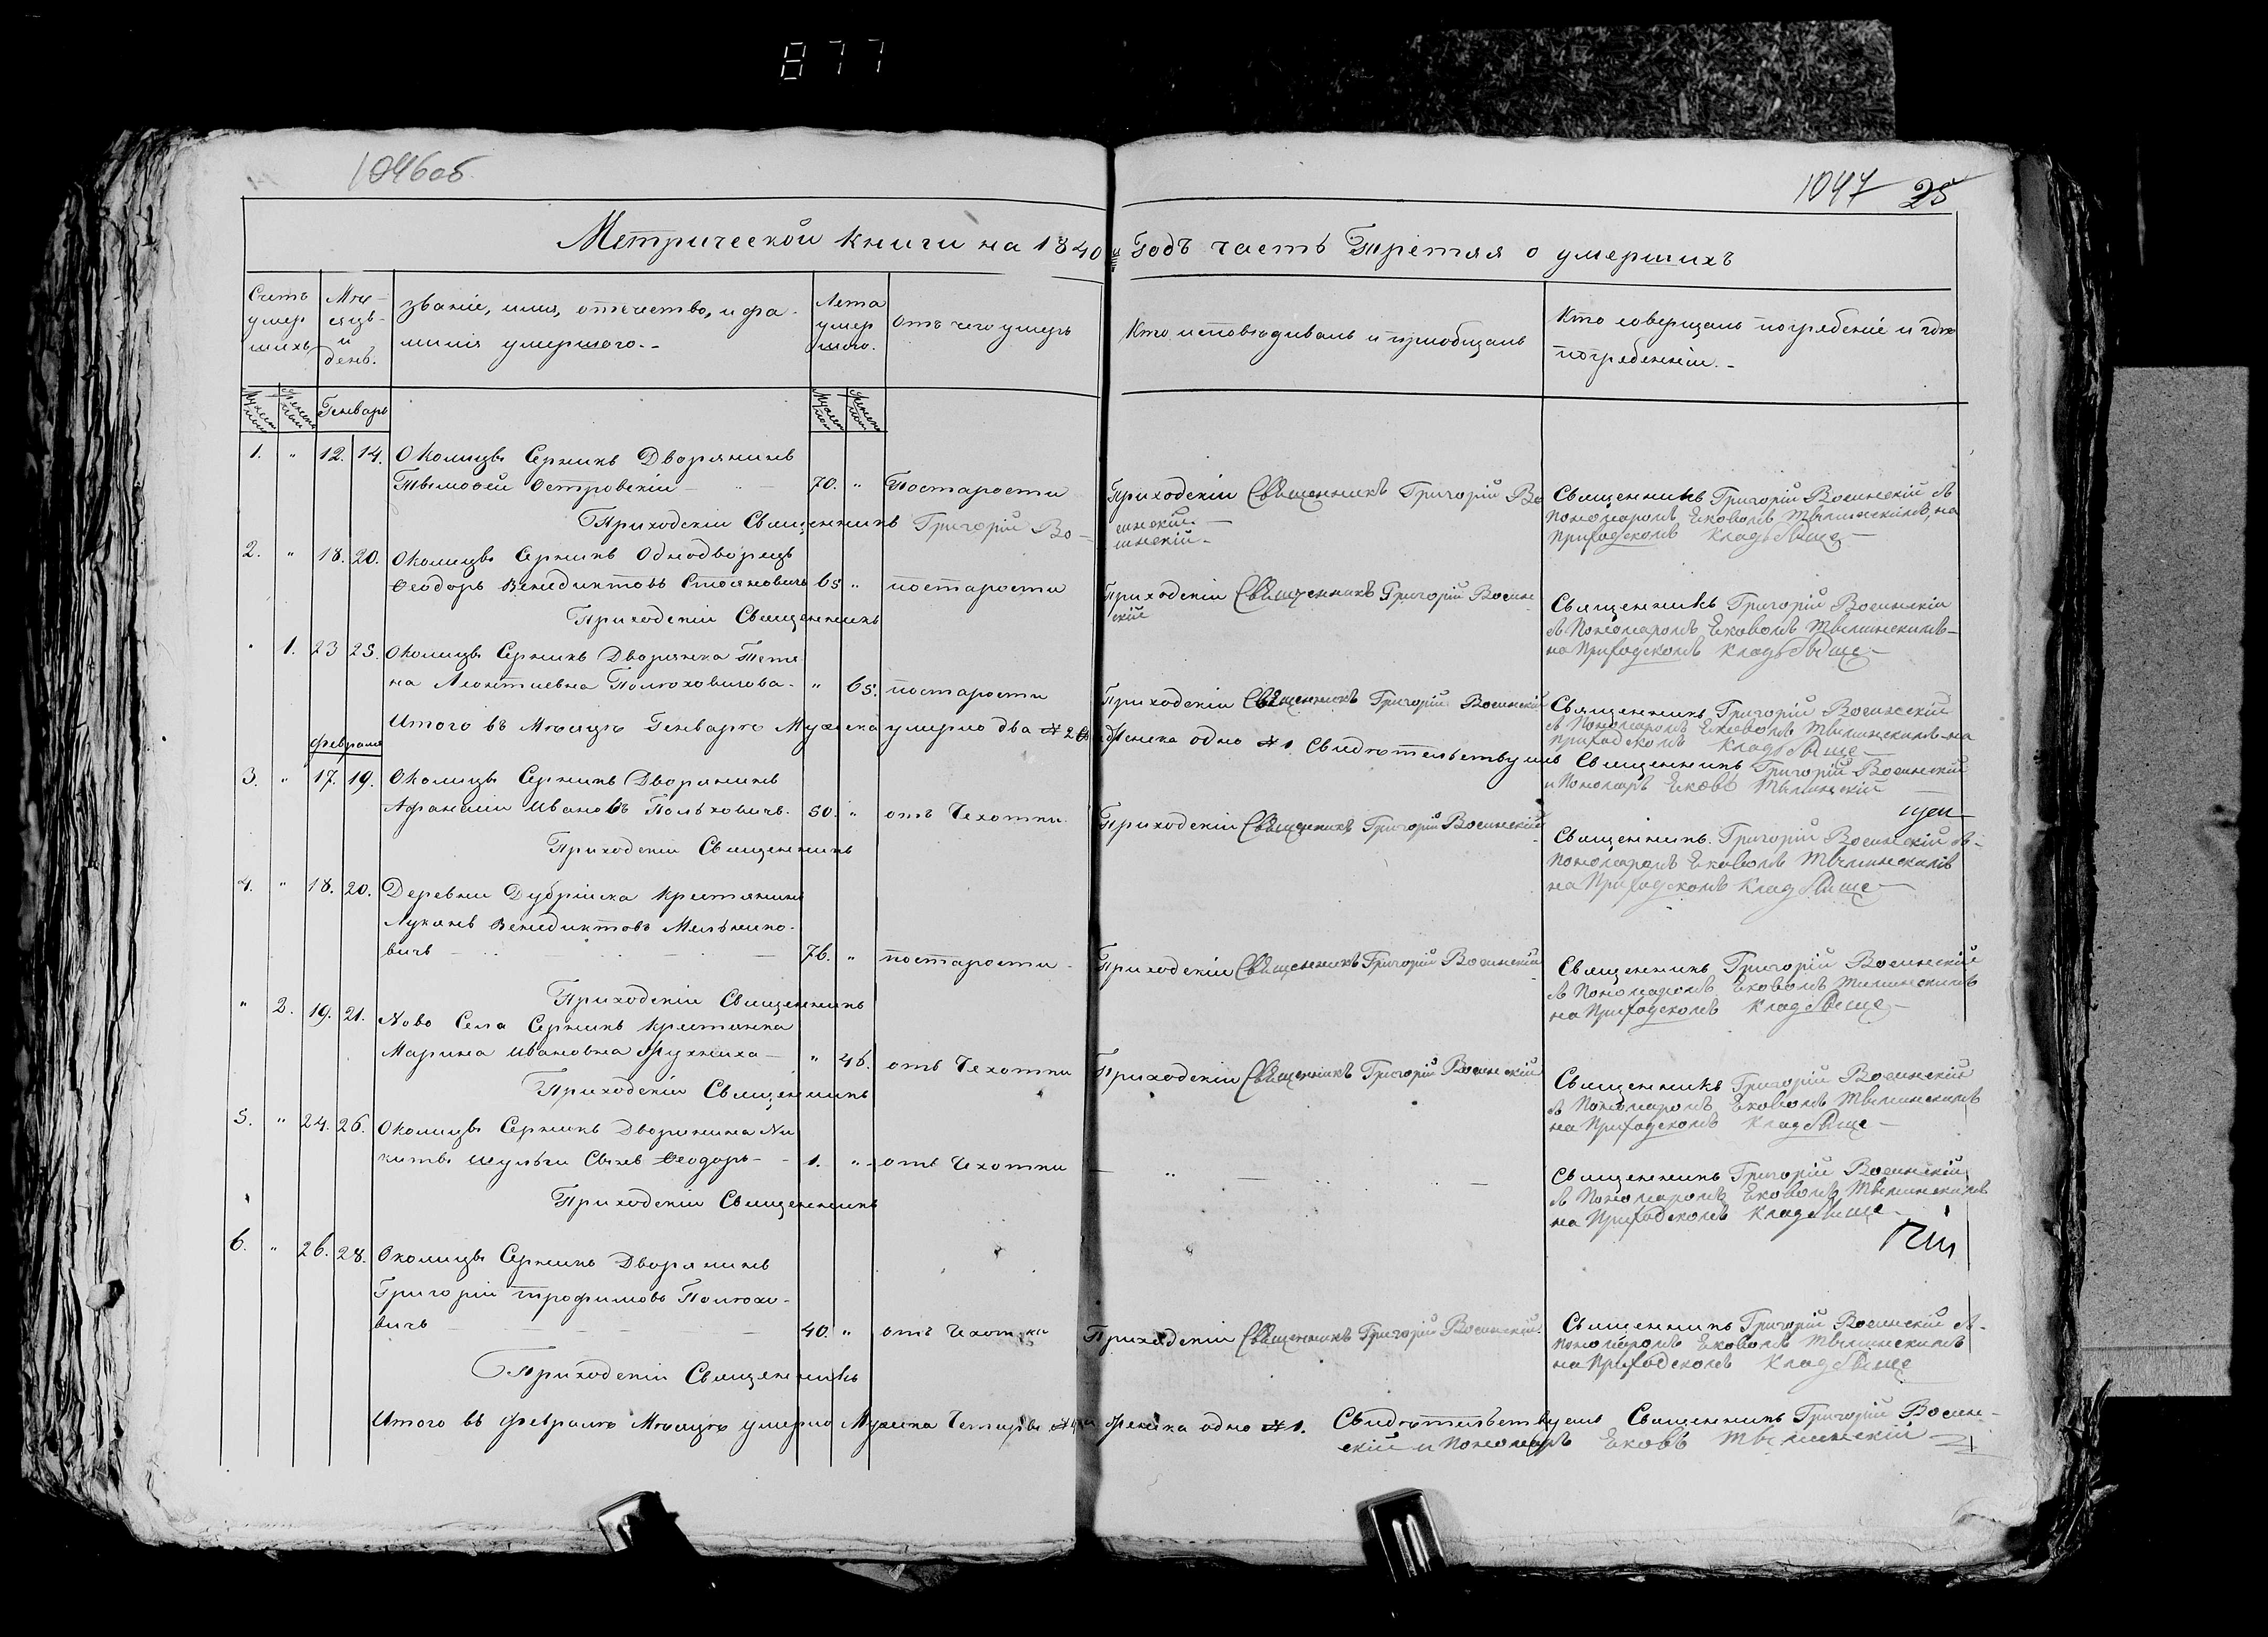 877
1046об
1047 25
Метрической книги на 1840й Годъ часть Третяя о умершихъ
Счетъ умершихъ
Месяцъ и день.
званіе, имя, отечество, и фамилія умершого.
Лета умершого.
Отъ чего умеръ
Кто исповѣдивалъ и приобщалъ
Кто совершалъ погребеніе и гдѣ погребенніи.
Генварь
1. " 12. 14. Околицы Серникъ Дворянинъ
Тымофей Островскій 70. " Постарости
Приходскій Священникъ Григорій Восинскій
Священникъ Григорій Восинскій съ
Пономаромъ Яковомъ Тылинскимъ, на
Приходскомъ кладбыще
Приходскіи Священникъ Григорій Восинскій
2. " 18. 20. Околицы Серникъ Однодворецъ
Феодоръ Венедиктовъ Стояновичъ 65 " постарости
Приходскіи Священникъ Григорій Восинскій
Священникъ Григорій Восинскіи
съ Пономаромъ Яковомъ Тылинскимъ
на Приходскомъ кладбыще
Приходскіи Священникъ
" 1. 23 25. Околицы Серникъ Дворянка Татяна
Леонтиевна Полюховичова " 65. постарости
Приходскіи Священникъ Григорій Восинскій
Священникъ Григорій Восинскій
съ Пономаромъ Яковомъ Тылинскимъ на
приходскомъ кладбыще
Итого въ Мѣсяцѣ Генварѣ Мужеска умерло два № 2 Женска одно № 1. Свидѣтельствуемъ Священникъ Григорій Восинскій
и Пономаръ Яковъ Тылинскій
февраля
3. " 17. 19. Околицы Серникъ Дворянинъ
Афанасіи Ивановъ Полюховичъ. 50. " отъ Чехотки
Приходскіи Священникъ Григорій Восинскій
Священникъ Григорій Восинскій съ
Пономаромъ Яковомъ Тылинскимъ
на Приходскомъ кладбыще
Приходскіи Священникъ
4. " 18. 20. Деревни Дубрійска Крестянинъ
Лукянъ Венедиктовъ Мельниковичъ
76. " постарости
Приходскіи Священникъ Григорій Восинскій
Священникъ Григорій Восинскій
съ Пономаромъ Яковомъ Тылинскимъ
на Приходскомъ кладбыще
Приходскіи Священникъ
" 2. 19. 21. Ново Села Серникъ Крестянка
Марина Ивановна " 46. отъ Чехотки
Приходскіи Священникъ Григорій Восинскій
Священникъ Григорій Восинскій
съ Пономаромъ Яковомъ Тылинскимъ
на Приходскомъ кладбыще
Приходскіи Священникъ
5. " 24. 26. Околицы Серникъ Дворянина Никиты
Шульги Сынъ Феодоръ 1. " отъ Чехотки
Священникъ Григорій Восинскій
съ Пономаромъ Яковомъ Тылинскимъ
на Приходскомъ кладбыще
Приходскіи Священникъ
6. " 26. 28. Околицы Серникъ Дворянинъ
Григорій Трофимовъ Полюховичъ
40. " отъ Чехотки
Приходскіи Священникъ Григорій Восинскій
Священникъ Григорій Восинскій съ
Пономаромъ Яковомъ Тылинскимъ
на Приходскомъ кладбыще
Приходскіи Священникъ
Итого въ Февралѣ Мѣсяцѣ умерло Мужска Четыры № 4 Женска одно № 1. Свидѣтельствуемъ Священникъ Григорій Восинскій
и Пономаръ Яковъ Тылинскій